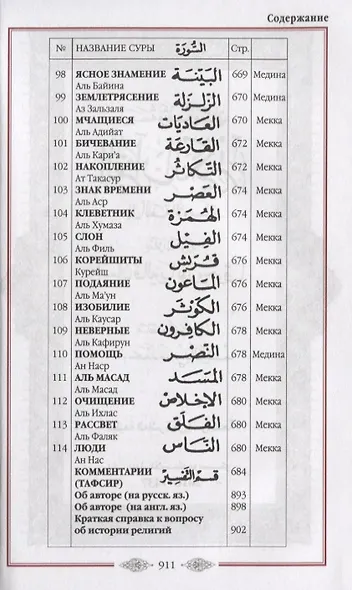 Содержание
№ НАЗВАНИЕ СУРЫ السُّورَة Стр.
98 ЯСНОЕ ЗНАМЕНИЕ البَيِّنَة 669 Медина
Аль Байина
99 ЗЕМЛЕТРЯСЕНИЕ الزلزلة 670 Медина
Аз Зальзаля
100 МЧАЩИЕСЯ العاديات 670 Мекка
Аль Адийат
101 БИЧЕВАНИЕ القارعة 672 Мекка
Аль Кари'а
102 НАКОПЛЕНИЕ التكاثر 672 Мекка
Ат Такасур
103 ЗНАК ВРЕМЕНИ العصر 674 Мекка
Аль Аср
104 КЛЕВЕТНИК الهمزة 674 Мекка
Аль Хумаза
105 СЛОН الفيل 674 Мекка
Аль Филь
106 КОРЕЙШИТЫ قريش 676 Мекка
Курейш
107 ПОДАЯНИЕ الماعون 676 Мекка
Аль Ма'ун
108 ИЗОБИЛИЕ الكوثر 676 Мекка
Аль Каусар
109 НЕВЕРНЫЕ الكافرون 678 Мекка
Аль Кафирун
110 ПОМОЩЬ النصر 678 Медина
Ан Наср
111 АЛЬ МАСАД المسد 678 Мекка
Аль Масад
112 ОЧИЩЕНИЕ الإخلاص 680 Мекка
Аль Ихлас
113 РАССВЕТ الفلق 680 Мекка
Аль Фаляк
114 ЛЮДИ الناس 680 Мекка
Ан Нас
КОММЕНТАРИИ قسم التفسير 684
(ТАФСИР)
Об авторе (на русск. яз.) 893
Об авторе (на англ. яз.) 898
Краткая справка к вопросу
об истории религий 902
911